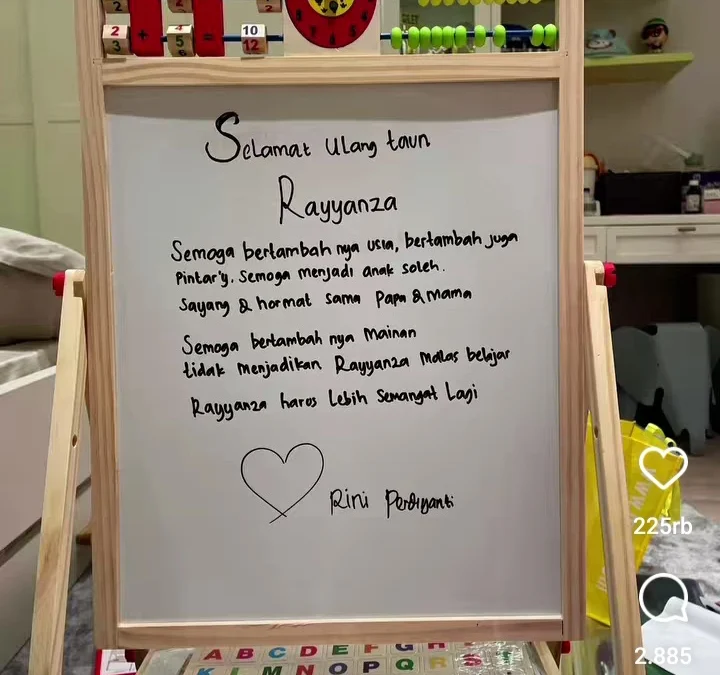 2 + 4 = 10
3 5 12
Selamat Ulang taun
Rayyanza
Semoga bertambah nya usia, bertambah juga
Pintar'y. Semoga menjadi anak soleh.
Sayang & hormat sama Papa & Mama
Semoga bertambah nya Mainan
tidak menjadikan Rayyanza Malas belajar
Rayyanza harus Lebih Semangat Lagi
Rini Perdiyanti
225rb
2.885
A B C D E F G H
K L M N O P Q R S